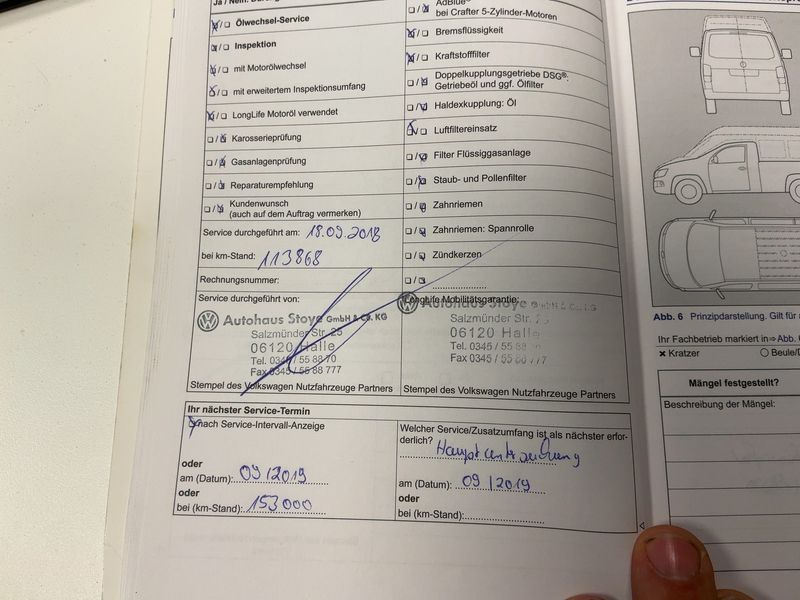 Ja / Nein:
☒/☐ Ölwechsel-Service
☒/☐ Inspektion
☒/☐ mit Motorölwechsel
☒/☐ mit erweitertem Inspektionsumfang
☒/☐ LongLife Motoröl verwendet
☐/☒ Karosserieprüfung
☐/☒ Gasanlagenprüfung
☐/☒ Reparaturempfehlung
☐/☒ Kundenwunsch
(auch auf dem Auftrag vermerken)
Service durchgeführt am: 18.09.2018
bei km-Stand: 113868
Rechnungsnummer:
Service durchgeführt von:
Autohaus Stoye GmbH & Co. KG
Salzmünder Str. 25
06120 Halle
Tel. 0345 / 55 88 70
Fax 0345 / 55 88 777
Stempel des Volkswagen Nutzfahrzeuge Partners
AdBlue®
☐/☒ bei Crafter 5-Zylinder-Motoren
☒/☐ Bremsflüssigkeit
☒/☐ Kraftstofffilter
☐/☒ Doppelkupplungsgetriebe DSG®:
Getriebeöl und ggf. Ölfilter
☐/☒ Haldexkupplung: Öl
☒/☐ Luftfiltereinsatz
☐/☒ Filter Flüssiggasanlage
☐/☒ Staub- und Pollenfilter
☐/☒ Zahnriemen
☐/☒ Zahnriemen: Spannrolle
☐/☒ Zündkerzen
☐/☒
LongLife Mobilitätsgarantie:
Autohaus Stoye GmbH & Co. KG
Salzmünder Str. 25
06120 Halle
Tel. 0345 / 55 88
Fax 0345 / 55 88 777
Stempel des Volkswagen Nutzfahrzeuge Partners
Ihr nächster Service-Termin
☒ nach Service-Intervall-Anzeige
oder
am (Datum): 09/2019
oder
bei (km-Stand): 153000
Welcher Service/Zusatzumfang ist als nächster erfor-
derlich? Hauptuntersuchung
am (Datum): 09/2019
oder
bei (km-Stand):
Abb. 6 Prinzipdarstellung. Gilt für
Ihr Fachbetrieb markiert in ⇒ Abb.
✖ Kratzer ○ Beule/
Mängel festgestellt?
Beschreibung der Mängel: